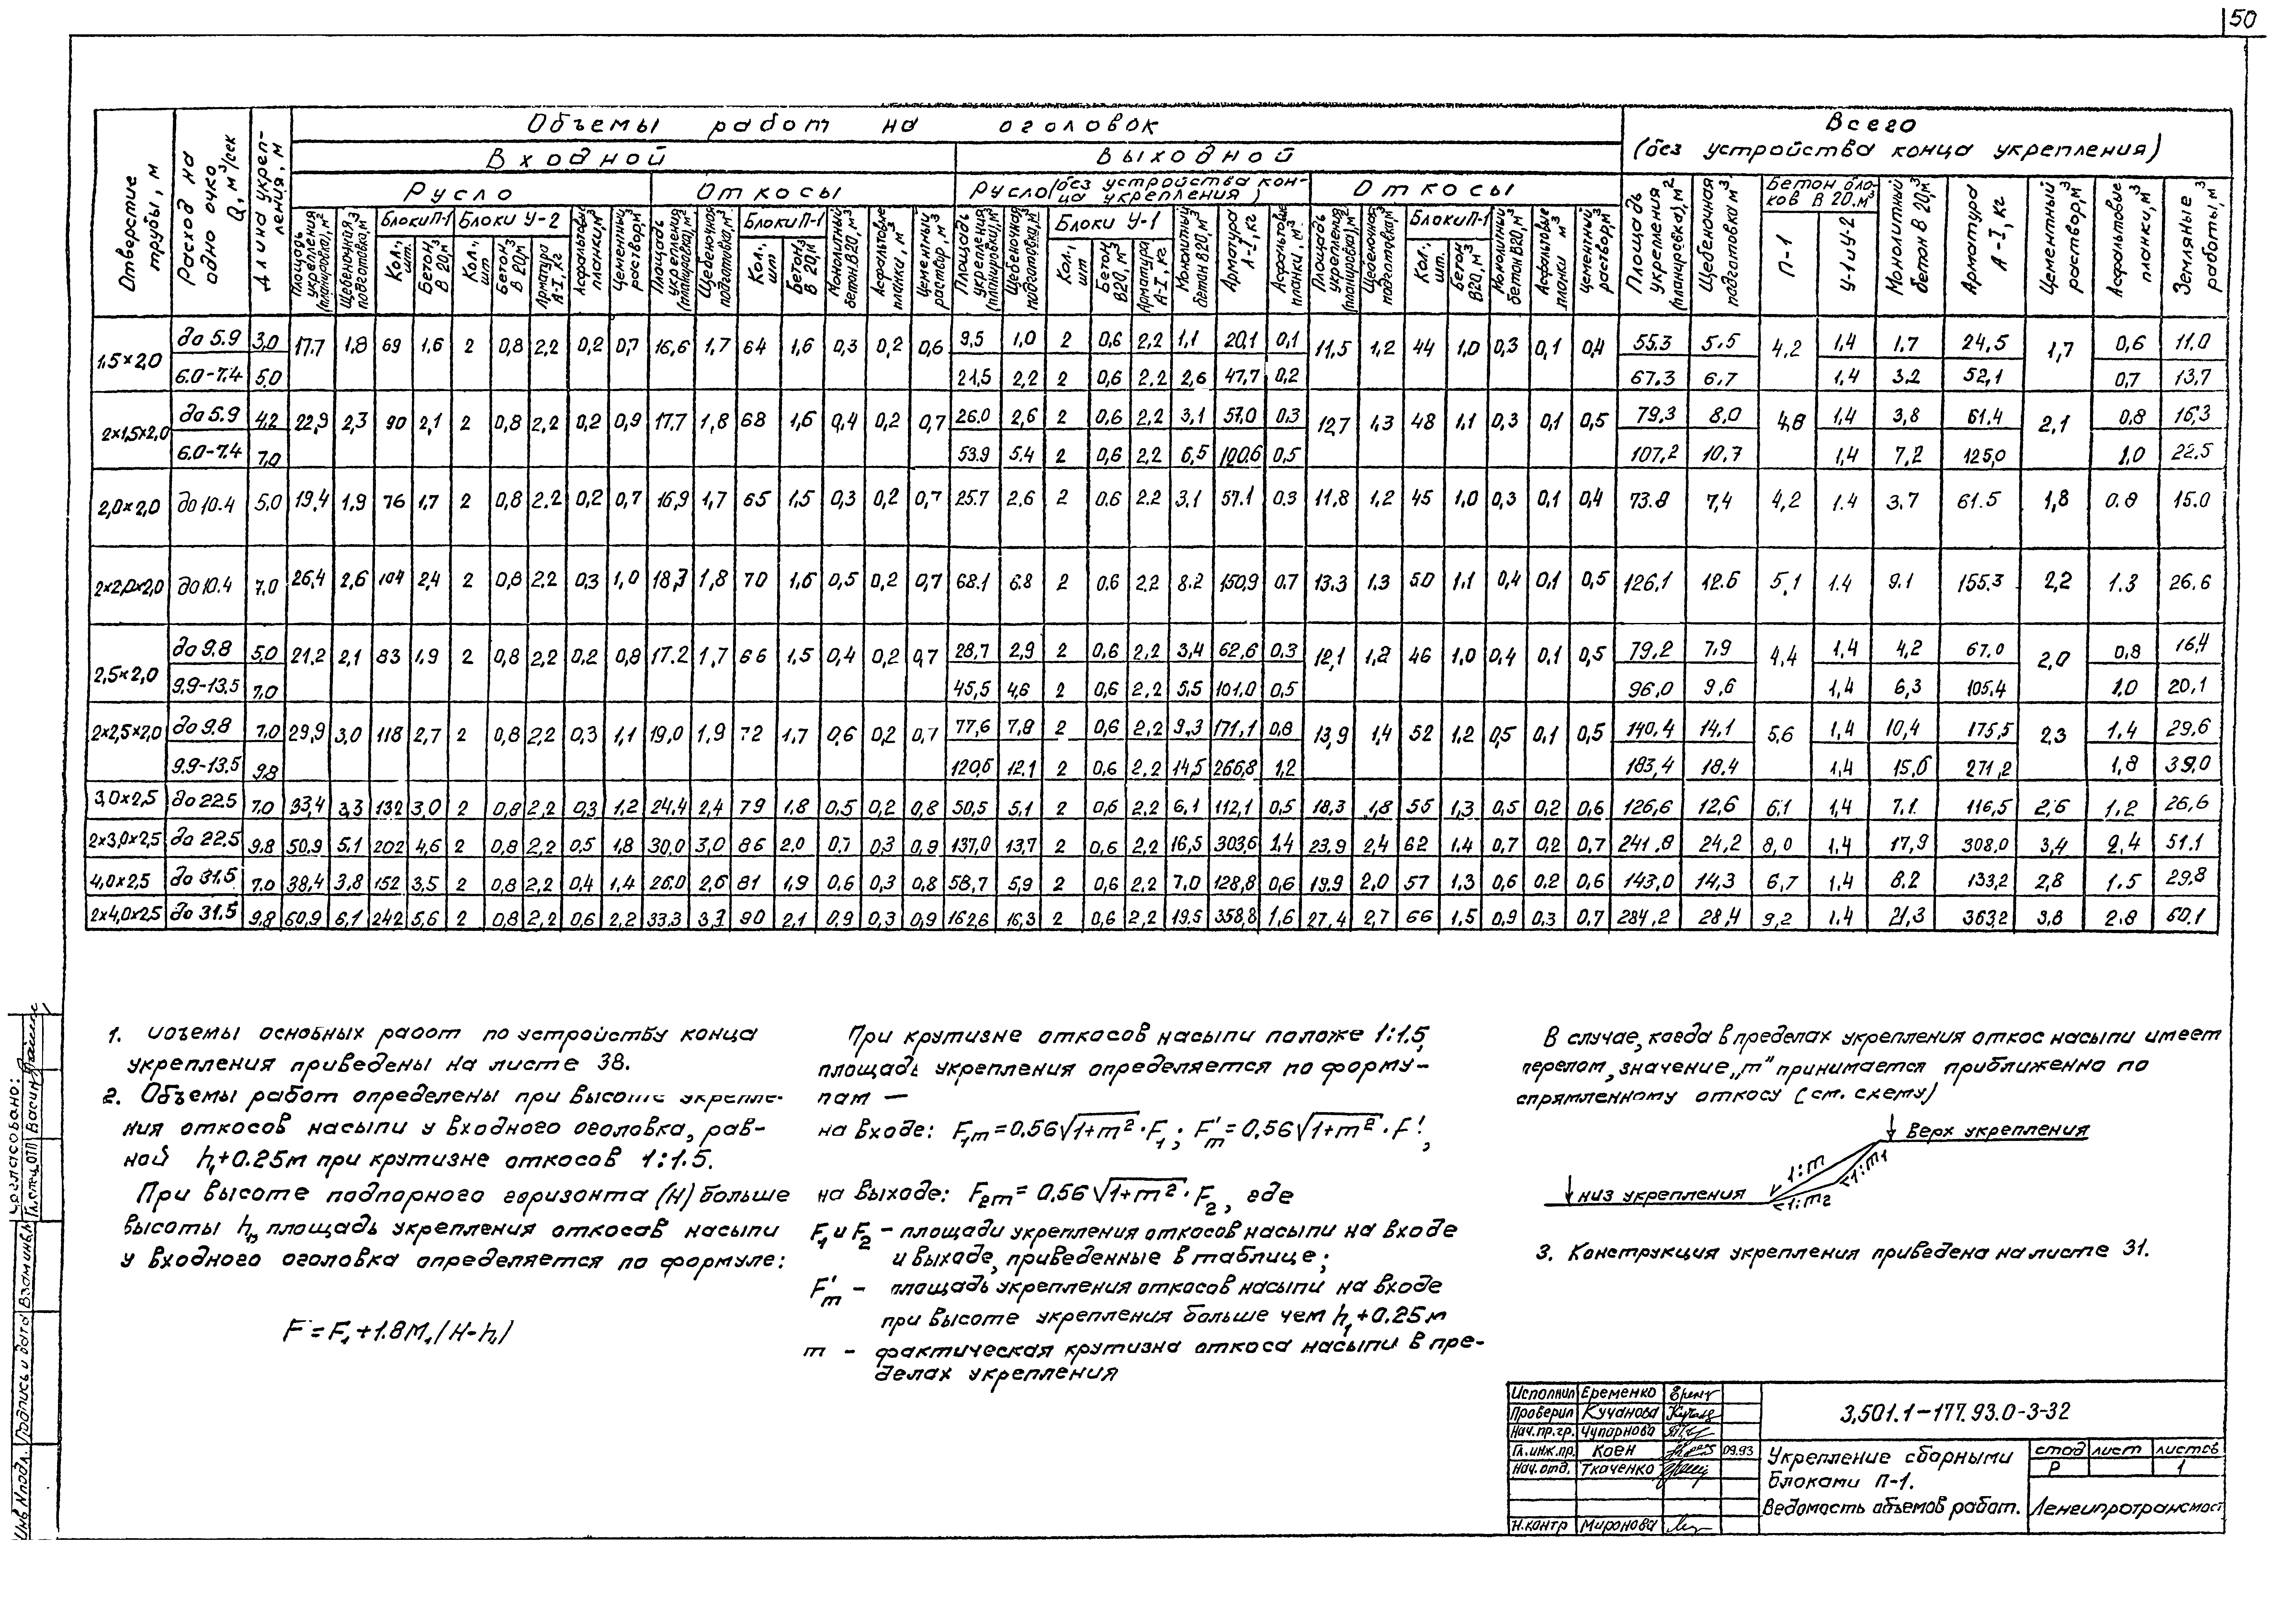 50
Объемы работ на оголовок
Всего
(без устройства конца укрепления)
Входной
Выходной
Русло
Откосы
Русло (без устройства кон-
ца укрепления)
Откосы
Отверстие трубы, м
Расход на одно очко Q, м³/сек
Длина укрепления, м
Площадь укрепления (планировка), м²
Щебеночная подготовка, м³
Блоки П-1
Кол., шт.
Бетон В 20, м³
Блоки У-2
Кол., шт
Бетон В 20, м³
Арматура А-I, кг
Асфальтовые планки, м³
Цементный раствор, м³
Площадь укрепления (планировка), м²
Щебеночная подготовка, м³
Блоки П-1
Кол., шт
Бетон В 20, м³
Монолитный бетон В20, м³
Асфальтовые планки, м³
Цементный раствор, м³
Площадь укрепления (планировки), м²
Щебеночная подготовка, м³
Блоки У-1
Кол., шт
Бетон В20, м³
Арматура А-I, кг
Монолитный бетон В20, м³
Арматура А-I, кг
Асфальтовые планки, м³
Площадь укрепления (планировка), м²
Щебеночная подготовка, м³
Блоки П-1
Кол., шт.
Бетон В20, м³
Монолитный бетон В20, м³
Асфальтовые планки м³
Цементный раствор, м³
Площадь укрепления (планировка), м²
Щебеночная подготовка м³
Бетон бло-
ков В 20. м³
П-1
У-1 и У-2
Монолитный бетон В 20, м³
Арматура А-I, кг
Цементный раствор, м³
Асфальтовые планки, м³
Земляные работы, м³
1,5×2,0 до 5.9 3,0 17.7 1,8 69 1,6 2 0,8 2,2 0,2 0,7 16,6 1,7 64 1,6 0,3 0,2 0,6 9,5 1,0 2 0,6 2,2 1,1 20,1 0,1 11,5 1,2 44 1,0 0,3 0,1 0,4 55.3 5.5 4,2 1,4 1.7 24,5 1,7 0,6 11.0
6.0-7.4 5,0 21,5 2,2 2 0,6 2.2 2,6 47,7 0,2 67.3 6.7 1,4 3.2 52,1 0,7 13,7
2×1,5×2,0 до 5.9 4,2 22,9 2,3 90 2,1 2 0,8 2,2 0,2 0,9 17.7 1,8 68 1,6 0,4 0,2 0,7 26.0 2,6 2 0,6 2,2 3,1 57,0 0.3 12,7 1,3 48 1,1 0,3 0,1 0,5 79,3 8,0 4,8 1,4 3,8 61.4 2,1 0,8 16,3
6.0-7.4 7,0 53.9 5.4 2 0,6 2,2 6,5 120,6 0,5 107,2 10,7 1,4 7,2 125,0 1,0 22.5
2,0×2,0 до 10.4 5,0 19,4 1,9 76 1,7 2 0,8 2,2 0,2 0,7 16,9 1,7 65 1,5 0,3 0,2 0,7 25.7 2,6 2 0.6 2.2 3,1 57.1 0.3 11,8 1,2 45 1,0 0,3 0,1 0,4 73.8 7,4 4,2 1.4 3.7 61.5 1,8 0.8 15.0
2×2,0×2,0 до 10.4 7,0 26,4 2,6 104 2,4 2 0,8 2,2 0,3 1,0 18,7 1,8 70 1,6 0,5 0,2 0,7 68.1 6.8 2 0.6 2.2 8.2 150,9 0.7 13.3 1.3 50 1,1 0,4 0,1 0,5 126,1 12.6 5,1 1.4 9.1 155.3 2,2 1.3 26.6
2,5×2,0 до 9.8 5,0 21,2 2,1 83 1,9 2 0,8 2,2 0,2 0,8 17.2 1,7 66 1,5 0,4 0,2 0,7 28,7 2,9 2 0,6 2,2 3,4 62,6 0,3 12,1 1,2 46 1,0 0,4 0,1 0,5 79,2 7,9 4,4 1,4 4,2 67.0 2,0 0,8 16,4
9.9-13,5 7,0 45,5 4,6 2 0,6 2,2 5,5 101,0 0,5 96,0 9,6 1,4 6,3 105,4 1,0 20,1
2×2,5×2,0 до 9.8 7,0 29,9 3,0 118 2,7 2 0,8 2,2 0,3 1,1 19,0 1,9 72 1,7 0,6 0,2 0,7 77,6 7,8 2 0,6 2,2 9,3 171,1 0,8 13,9 1,4 52 1,2 0,5 0,1 0,5 140,4 14,1 5,6 1,4 10,4 175,5 2,3 1,4 29,6
9.9-13,5 9,8 120,6 12,1 2 0,6 2,2 14,5 266,8 1,2 183,4 18,4 1,4 15,6 271,2 1,8 39,0
3,0×2,5 до 22,5 7,0 33,4 3,3 132 3,0 2 0,8 2,2 0,3 1,2 24,4 2,4 79 1,8 0,5 0,2 0,8 50,5 5,1 2 0,6 2,2 6,1 112,1 0,5 18,3 1,8 55 1,3 0,5 0,2 0,6 126,6 12,6 6,1 1,4 7,1 116,5 2,6 1,2 26,6
2×3,0×2,5 до 22,5 9,8 50,9 5,1 202 4,6 2 0,8 2,2 0,5 1,8 30,0 3,0 86 2,0 0,7 0,3 0,9 137,0 13,7 2 0,6 2,2 16,5 303,6 1,4 23,9 2,4 62 1,4 0,7 0,2 0,7 241,8 24,2 8,0 1,4 17,9 308,0 3,4 2,4 51,1
4,0×2,5 до 31.5 7,0 38,4 3,8 152 3,5 2 0,8 2,2 0,4 1,4 26,0 2,6 81 1,9 0,6 0,3 0,8 58,7 5,9 2 0,6 2,2 7,0 128,8 0,6 19,9 2,0 57 1,3 0,6 0,2 0,6 143,0 14,3 6,7 1,4 8.2 133,2 2,8 1.5 29.8
2×4,0×2,5 до 31.5 9.8 60,9 6,1 242 5,6 2 0,8 2,2 0,6 2,2 33,3 3,3 90 2,1 0,9 0,3 0,9 162,6 16,3 2 0,6 2,2 19.5 358,8 1,6 27,4 2,7 66 1,5 0,9 0,3 0,7 284,2 28,4 9,2 1.4 21,3 363,2 3,8 2.8 60.1
1. Объемы основных работ по устройству конца
укрепления приведены на листе 38.
2. Объемы работ определены при высоте укрепле-
ния откосов насыпи у входного оголовка, рав-
ной h₁+0.25м при крутизне откосов 1:1.5.
При высоте подпорного горизонта (H) больше
высоты h₁, площадь укрепления откосов насыпи
у входного оголовка определяется по формуле:
F'=F₁+1.8M₁(H-h₁)
При крутизне откосов насыпи положе 1:1.5,
площадь укрепления определяется по форму-
лам —
на входе: F₁m=0.56√1+m²·F₁; F'm=0.56√1+m²·F',
на выходе: F₂m=0.56√1+m²·F₂, где
F₁ и F₂ – площади укрепления откосов насыпи на входе
и выходе, приведенные в таблице;
F'm – площадь укрепления откосов насыпи на входе
при высоте укрепления больше чем h₁+0.25м
m – фактическая крутизна откоса насыпи в пре-
делах укрепления
В случае, когда в пределах укрепления откос насыпи имеет
перелом, значение „m" принимается приближенно по
спрямленному откосу (см. схему)
Верх укрепления
1:m
1:m₁
низ укрепления
1:m₂
3. Конструкция укрепления приведена на листе 31.
Согласовано:
Гл.спец.ОТП Васин
Взам.инв.№
Подпись и дата
Инв.№подл.
Исполнил Еременко
Проверил Кучанова
Нач.пр.гр. Чупарнова
Гл.инж.пр. Коен 09.93
Нач.отд. Ткаченко
Н.контр Миронова
3.501.1-177.93.0-3-32
Укрепление сборными
блоками П-1.
Ведомость объемов работ.
стад лист листов
Р 1
Ленгипротрансмост